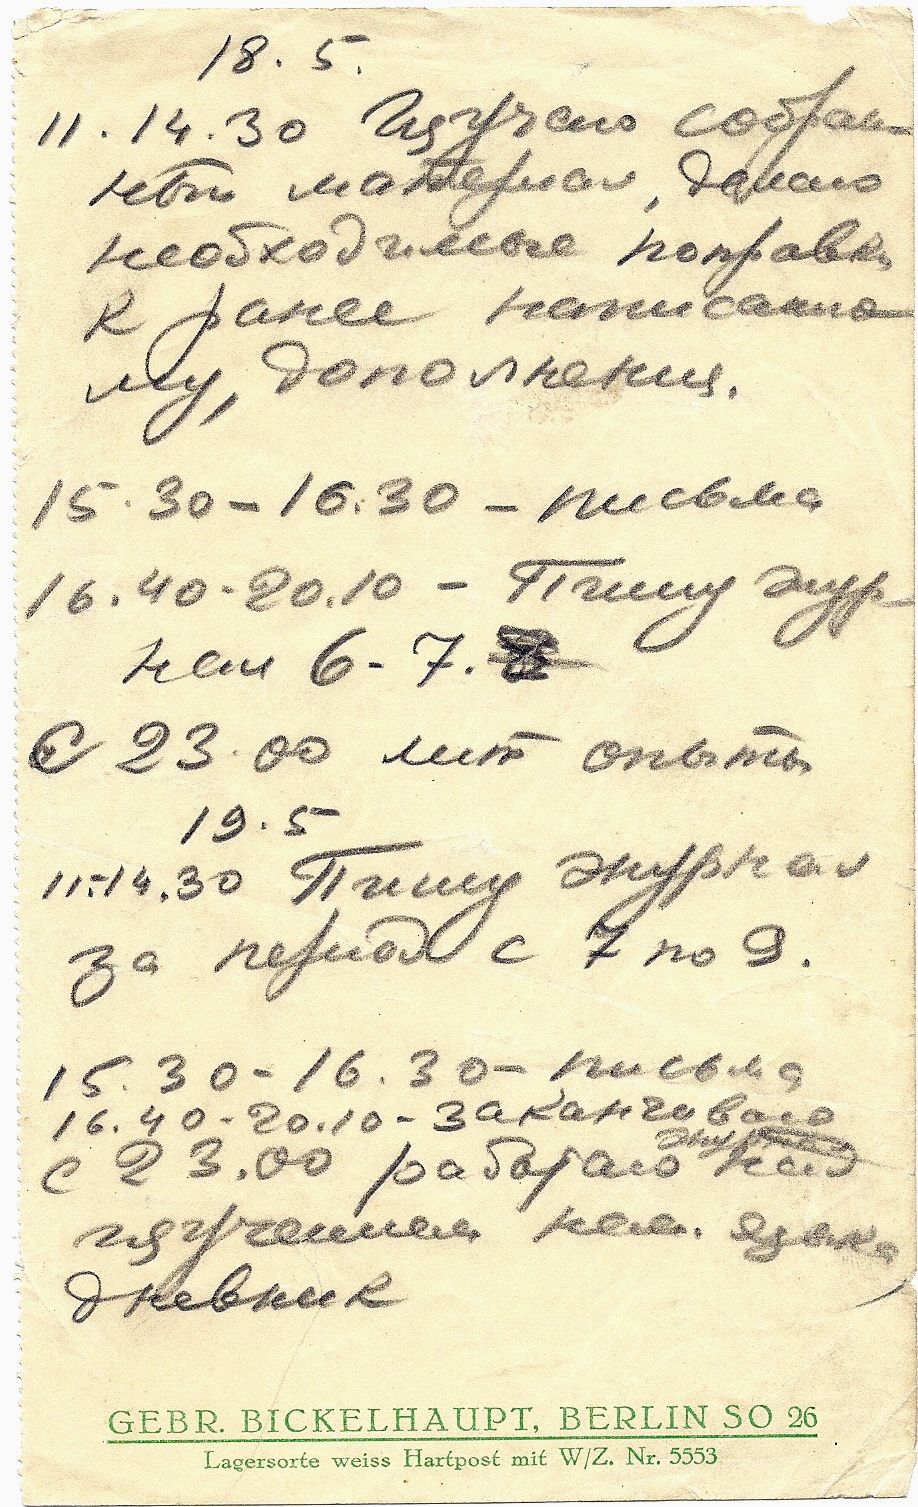 18.5.
11.14.30 Изучаю собран-
ный материал, делаю
необходимые поправки
к ранее написанно-
му, дополнения.
15.30-16.30 - письма
16.40-20.10 - Пишу жур-
нал 6-7.
С 23.00 лит опыты
19.5
11-14.30 Пишу журнал
за период с 7 по 9.
15.30-16.30- письма
16.40-20.10-заканчиваю
журнал
с 23.00 работаю над
изучением нем. языка
дневник
GEBR. BICKELHAUPT, BERLIN SO 26
Lagersorte weiss Hartpost mit W/Z. Nr. 5553